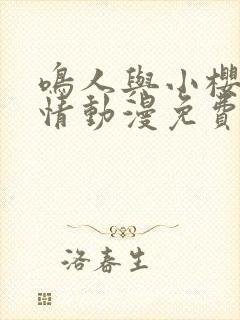 鳴人與小櫻
情動漫免費
洛春生